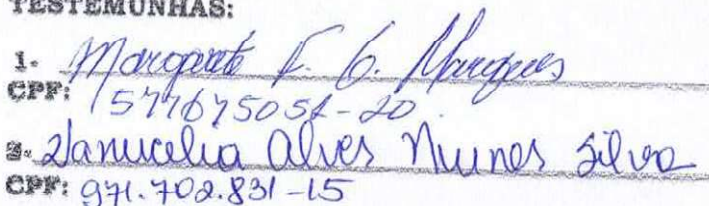 TESTEMUNHAS:
1- Margarete F. G. Marques
CPF: 577675051-20
2- Vanucelia Alves Nunes Silva
CPF: 971.702.831-15